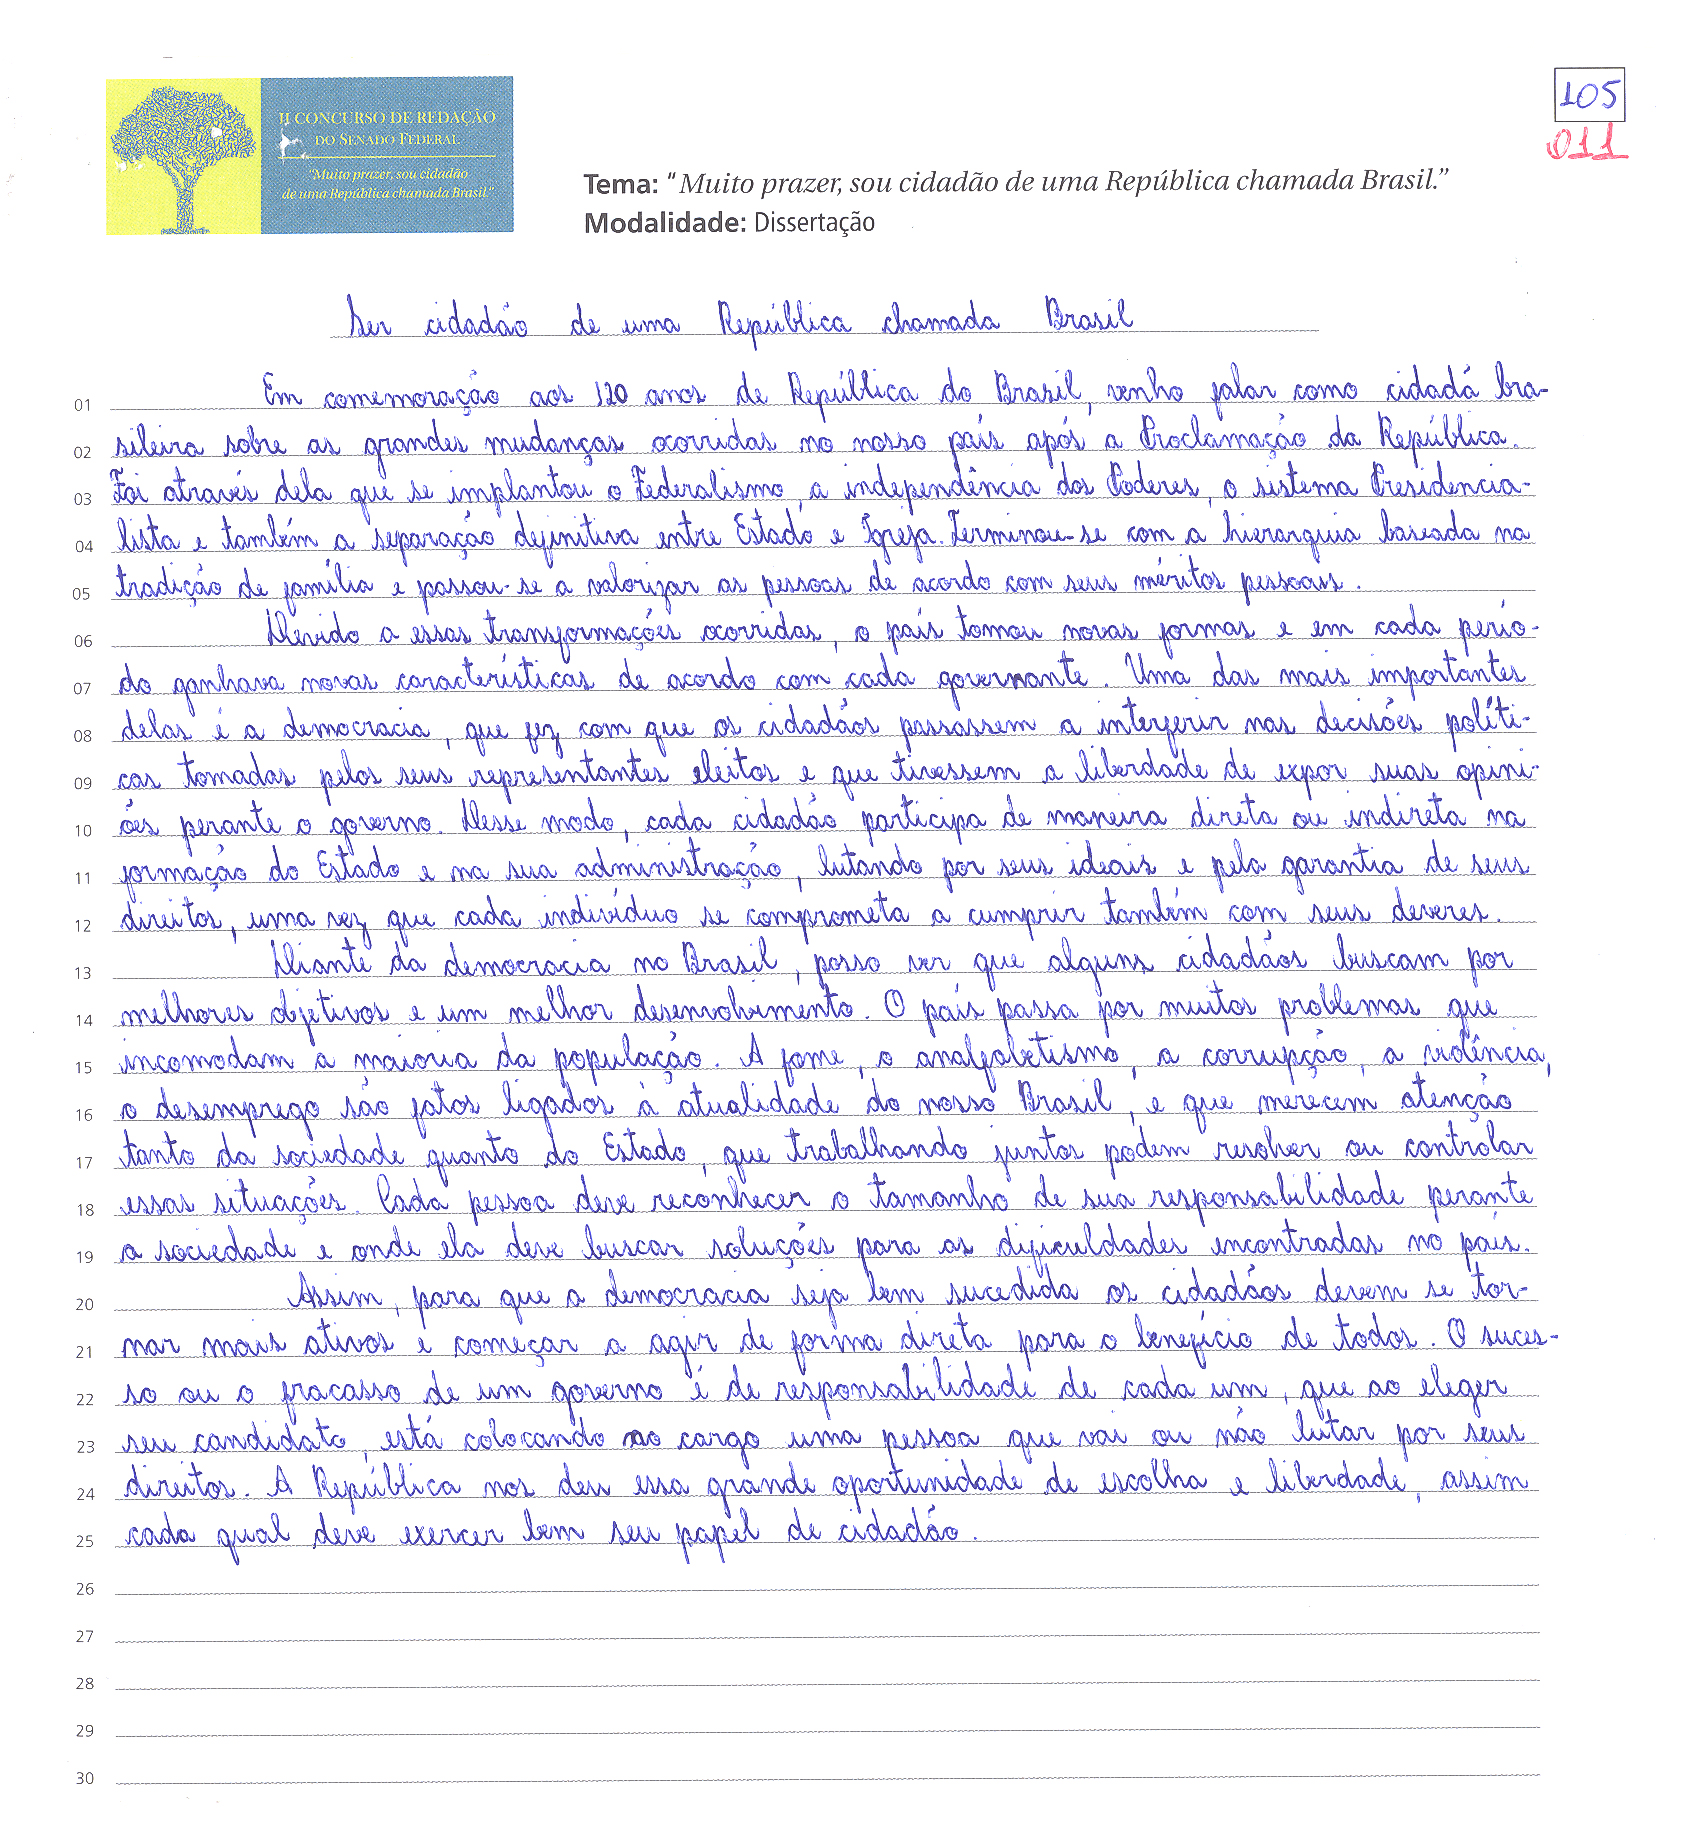 105
011
II CONCURSO DE REDAÇÃO
DO SENADO FEDERAL
"Muito prazer, sou cidadão
de uma República chamada Brasil."
Tema: "Muito prazer, sou cidadão de uma República chamada Brasil."
Modalidade: Dissertação
Ser cidadão de uma República chamada Brasil
01 Em comemoração aos 120 anos de República do Brasil, venho falar como cidadã bra-
02 sileira sobre as grandes mudanças ocorridas no nosso país após a Proclamação da República.
03 Foi através dela que se implantou o Federalismo, a independência dos Poderes, o sistema Presidencia-
04 lista e também a separação definitiva entre Estado e Igreja. Terminou-se com a hierarquia baseada na
05 tradição de família e passou-se a valorizar as pessoas de acordo com seus méritos pessoais.
06 Devido a essas transformações ocorridas, o país tomou novas formas e em cada perío-
07 do ganhava novas características de acordo com cada governante. Uma das mais importantes
08 delas é a democracia, que fez com que os cidadãos passassem a interferir nas decisões políti-
09 cas tomadas pelos seus representantes eleitos e que tivessem a liberdade de expor suas opini-
10 ões perante o governo. Desse modo, cada cidadão participa de maneira direta ou indireta na
11 formação do Estado e na sua administração, lutando por seus ideais e pela garantia de seus
12 direitos, uma vez que cada indivíduo se comprometa a cumprir também com seus deveres.
13 Diante da democracia no Brasil, posso ver que alguns cidadãos buscam por
14 melhores objetivos e um melhor desenvolvimento. O país passa por muitos problemas que
15 incomodam a maioria da população. A fome, o analfabetismo, a corrupção, a violência,
16 o desemprego são fatos ligados à atualidade do nosso Brasil, e que merecem atenção
17 tanto da sociedade quanto do Estado, que trabalhando juntos podem resolver ou controlar
18 essas situações. Cada pessoa deve reconhecer o tamanho de sua responsabilidade perante
19 a sociedade e onde ela deve buscar soluções para as dificuldades encontradas no país.
20 Assim, para que a democracia seja bem sucedida os cidadãos devem se tor-
21 nar mais ativos e começar a agir de forma direta para o benefício de todos. O suces-
22 so ou o fracasso de um governo é de responsabilidade de cada um, que ao eleger
23 seu candidato, está colocando no cargo uma pessoa que vai ou não lutar por seus
24 direitos. A República nos deu essa grande oportunidade de escolha e liberdade, assim
25 cada qual deve exercer bem seu papel de cidadão.
26
27
28
29
30